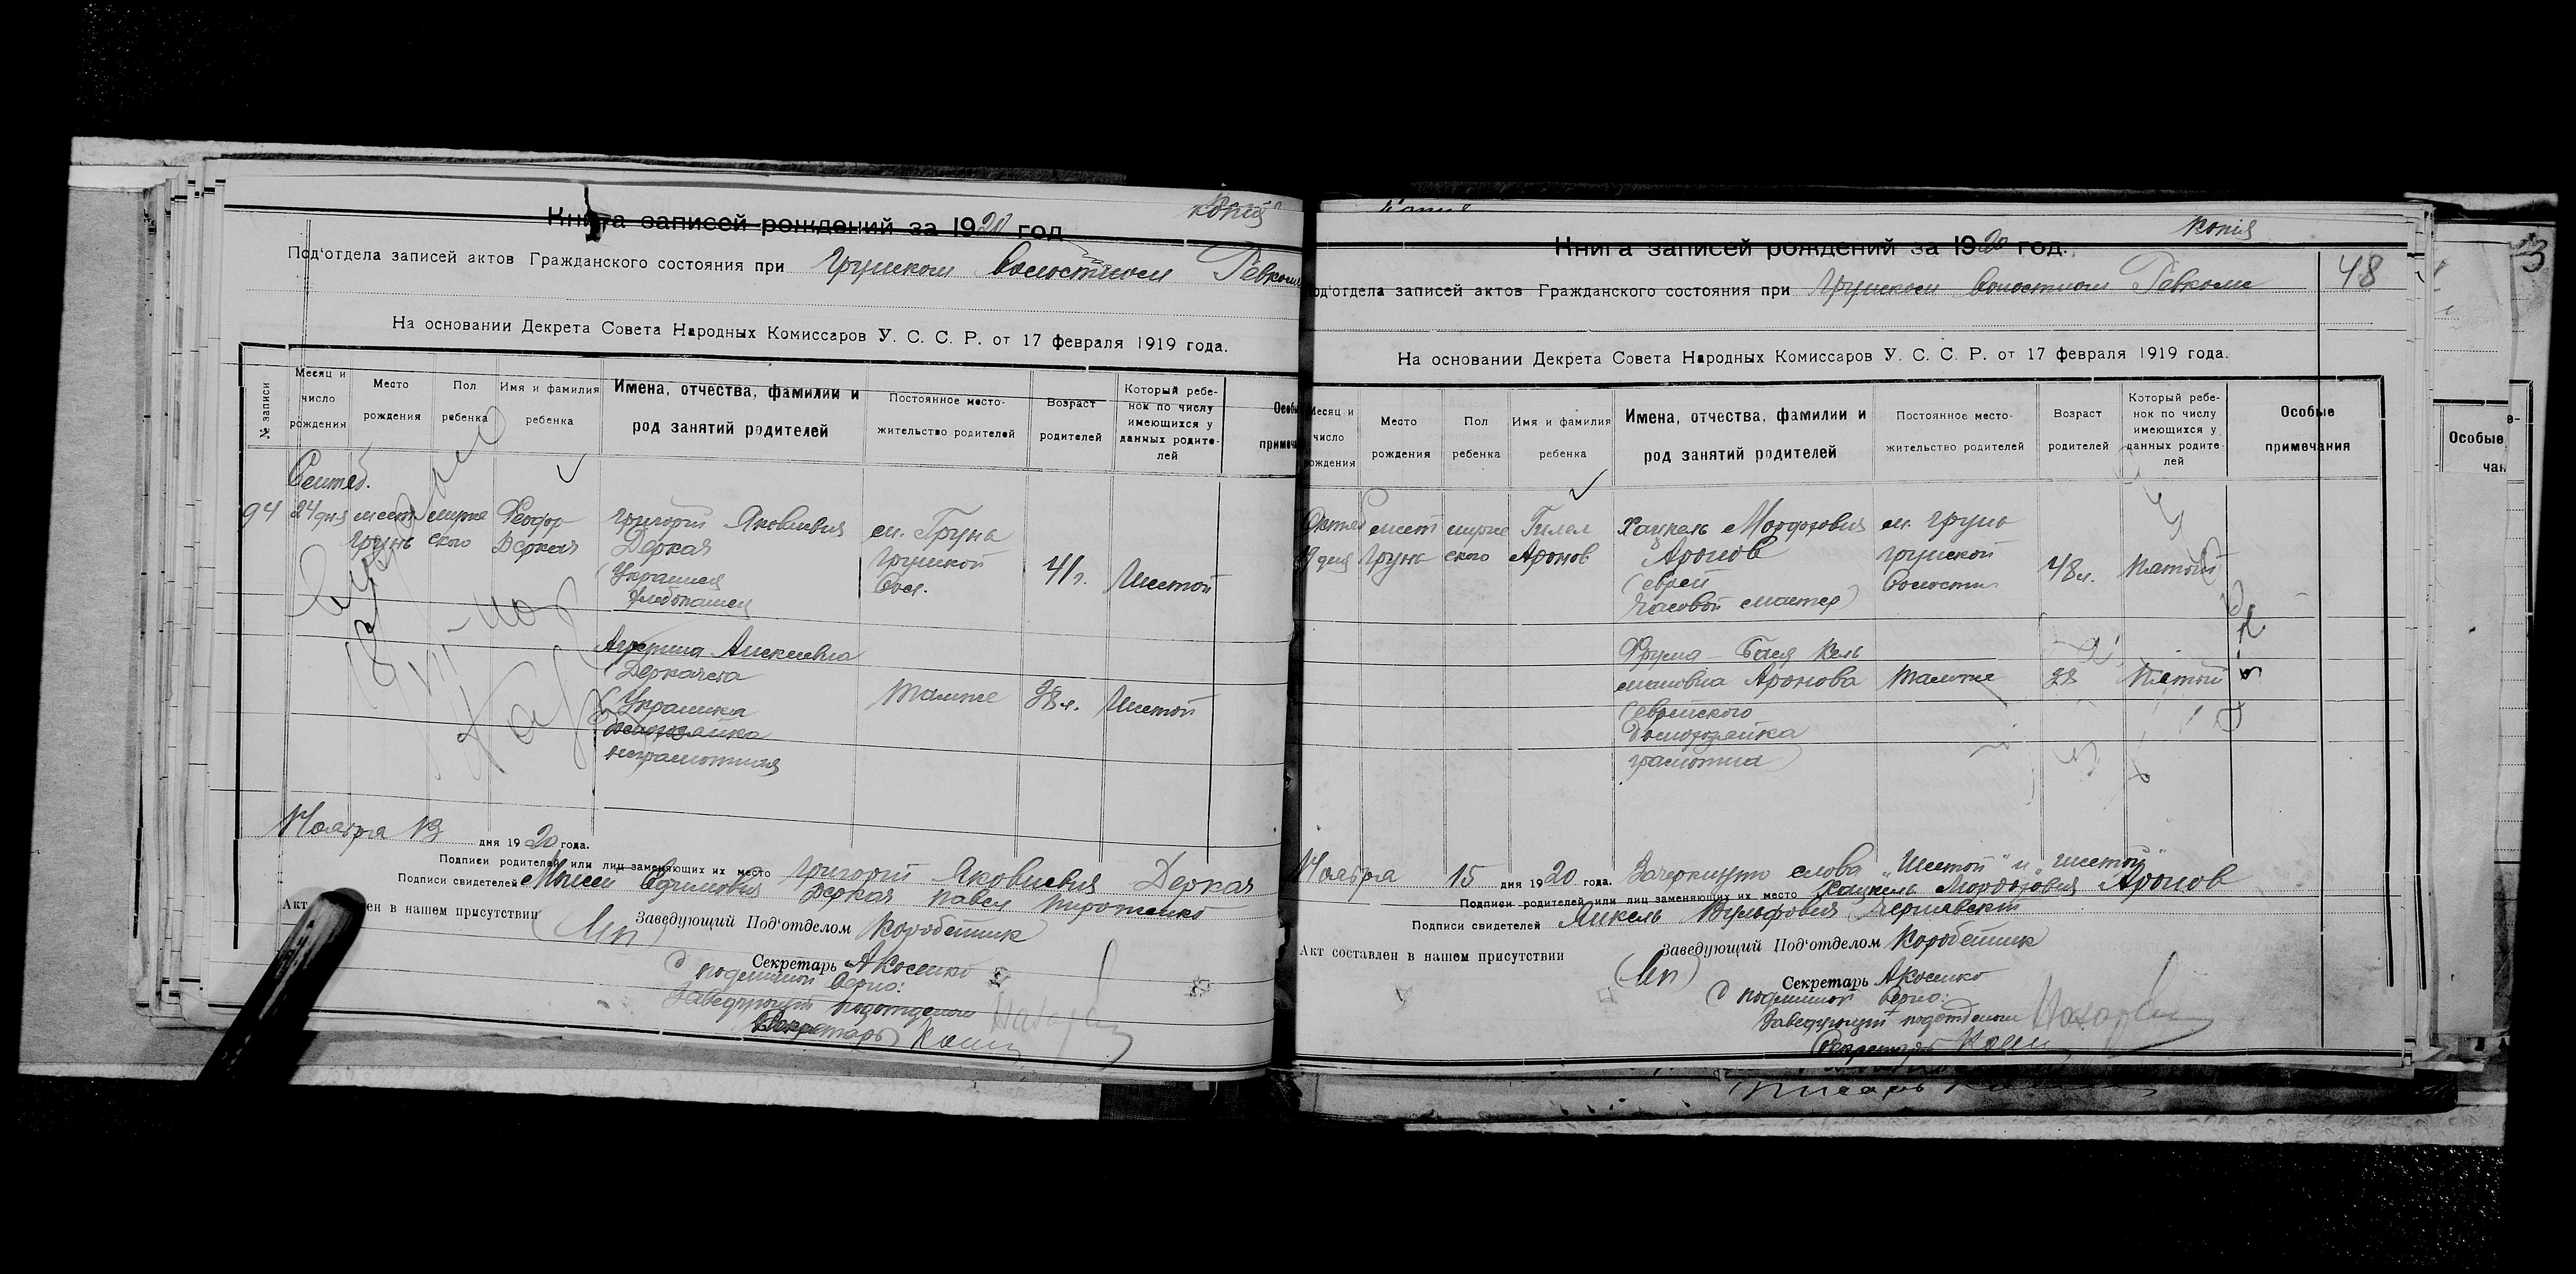 Книга записей рождений за 1920 год
копия
Под'отдела записей актов Гражданского состояния при Грунском Волостном Ревкоме
На основании Декрета Совета Народных Комиссаров У. С. С. Р. от 17 февраля 1919 года.
№ записи
Месяц и число рождения
Место рождения
Пол ребенка
Имя и фамилия ребенка
Имена, отчества, фамилии и род занятий родителей
Постоянное место-жительство родителей
Возраст родителей
Который ребе-нок по числу имеющихся у данных родите-лей
Сентяб.
94 24 дня мест. Грунь мужеского Феодор Деркач
Григорий Яковлевич
Деркач
Украинец
хлебопашец
м. Грунь
Грунской
Вол.
41 г.
Шестой
Алексеевна
Деркачева
(Украинка
домохозяйка
неграмотная
Тамже
38 л.
Шестой
Ноября 13 дня 1920 года.
Подписи родителей или лиц заменяющих их место Григорий Яковлевич Деркач
Подписи свидетелей Моисей Ефимович Деркач Павел
Акт в нашем присутствии
(Мп) Заведующий Под'отделом Коробейник
Секретарь А Косенко
С подлинной верно:
Заведующий подотделом
Секретарь
Книга записей рождений за 1920 год.
копия
48
Под'отдела записей актов Гражданского состояния при Грунском Волостном Ревкоме
На основании Декрета Совета Народных Комиссаров У. С. С. Р. от 17 февраля 1919 года.
Месяц и число рождения
Место рождения
Пол ребенка
Имя и фамилия ребенка
Имена, отчества, фамилии и род занятий родителей
Постоянное место-жительство родителей
Возраст родителей
Который ребе-нок по числу имеющихся у данных родите-лей
Особые примечания
Октяб мест Грунь мужеского Аронов
Хацкель Мордухович
Аронов
(еврей
часовой мастер)
м. Грунь
Грунской
Волости
48 л.
Пятый
Фрума-Бася
Аронова
(еврейского
домохозяйка
грамотна)
Тамже
28
Пятый
Ноября 15 дня 1920 года. Зачеркнуто слова „Шестой" и „шестой"
Подписи родителей или лиц заменяющих их место Хацкель Мордухович Аронов
Подписи свидетелей Янкель Вульфович Чернявский
Акт составлен в нашем присутствии
(Мп) Заведующий Под'отделом Коробейник
Секретарь А Косенко
С подлинной верно:
Заведующий подотделом
Секретарь
Особые